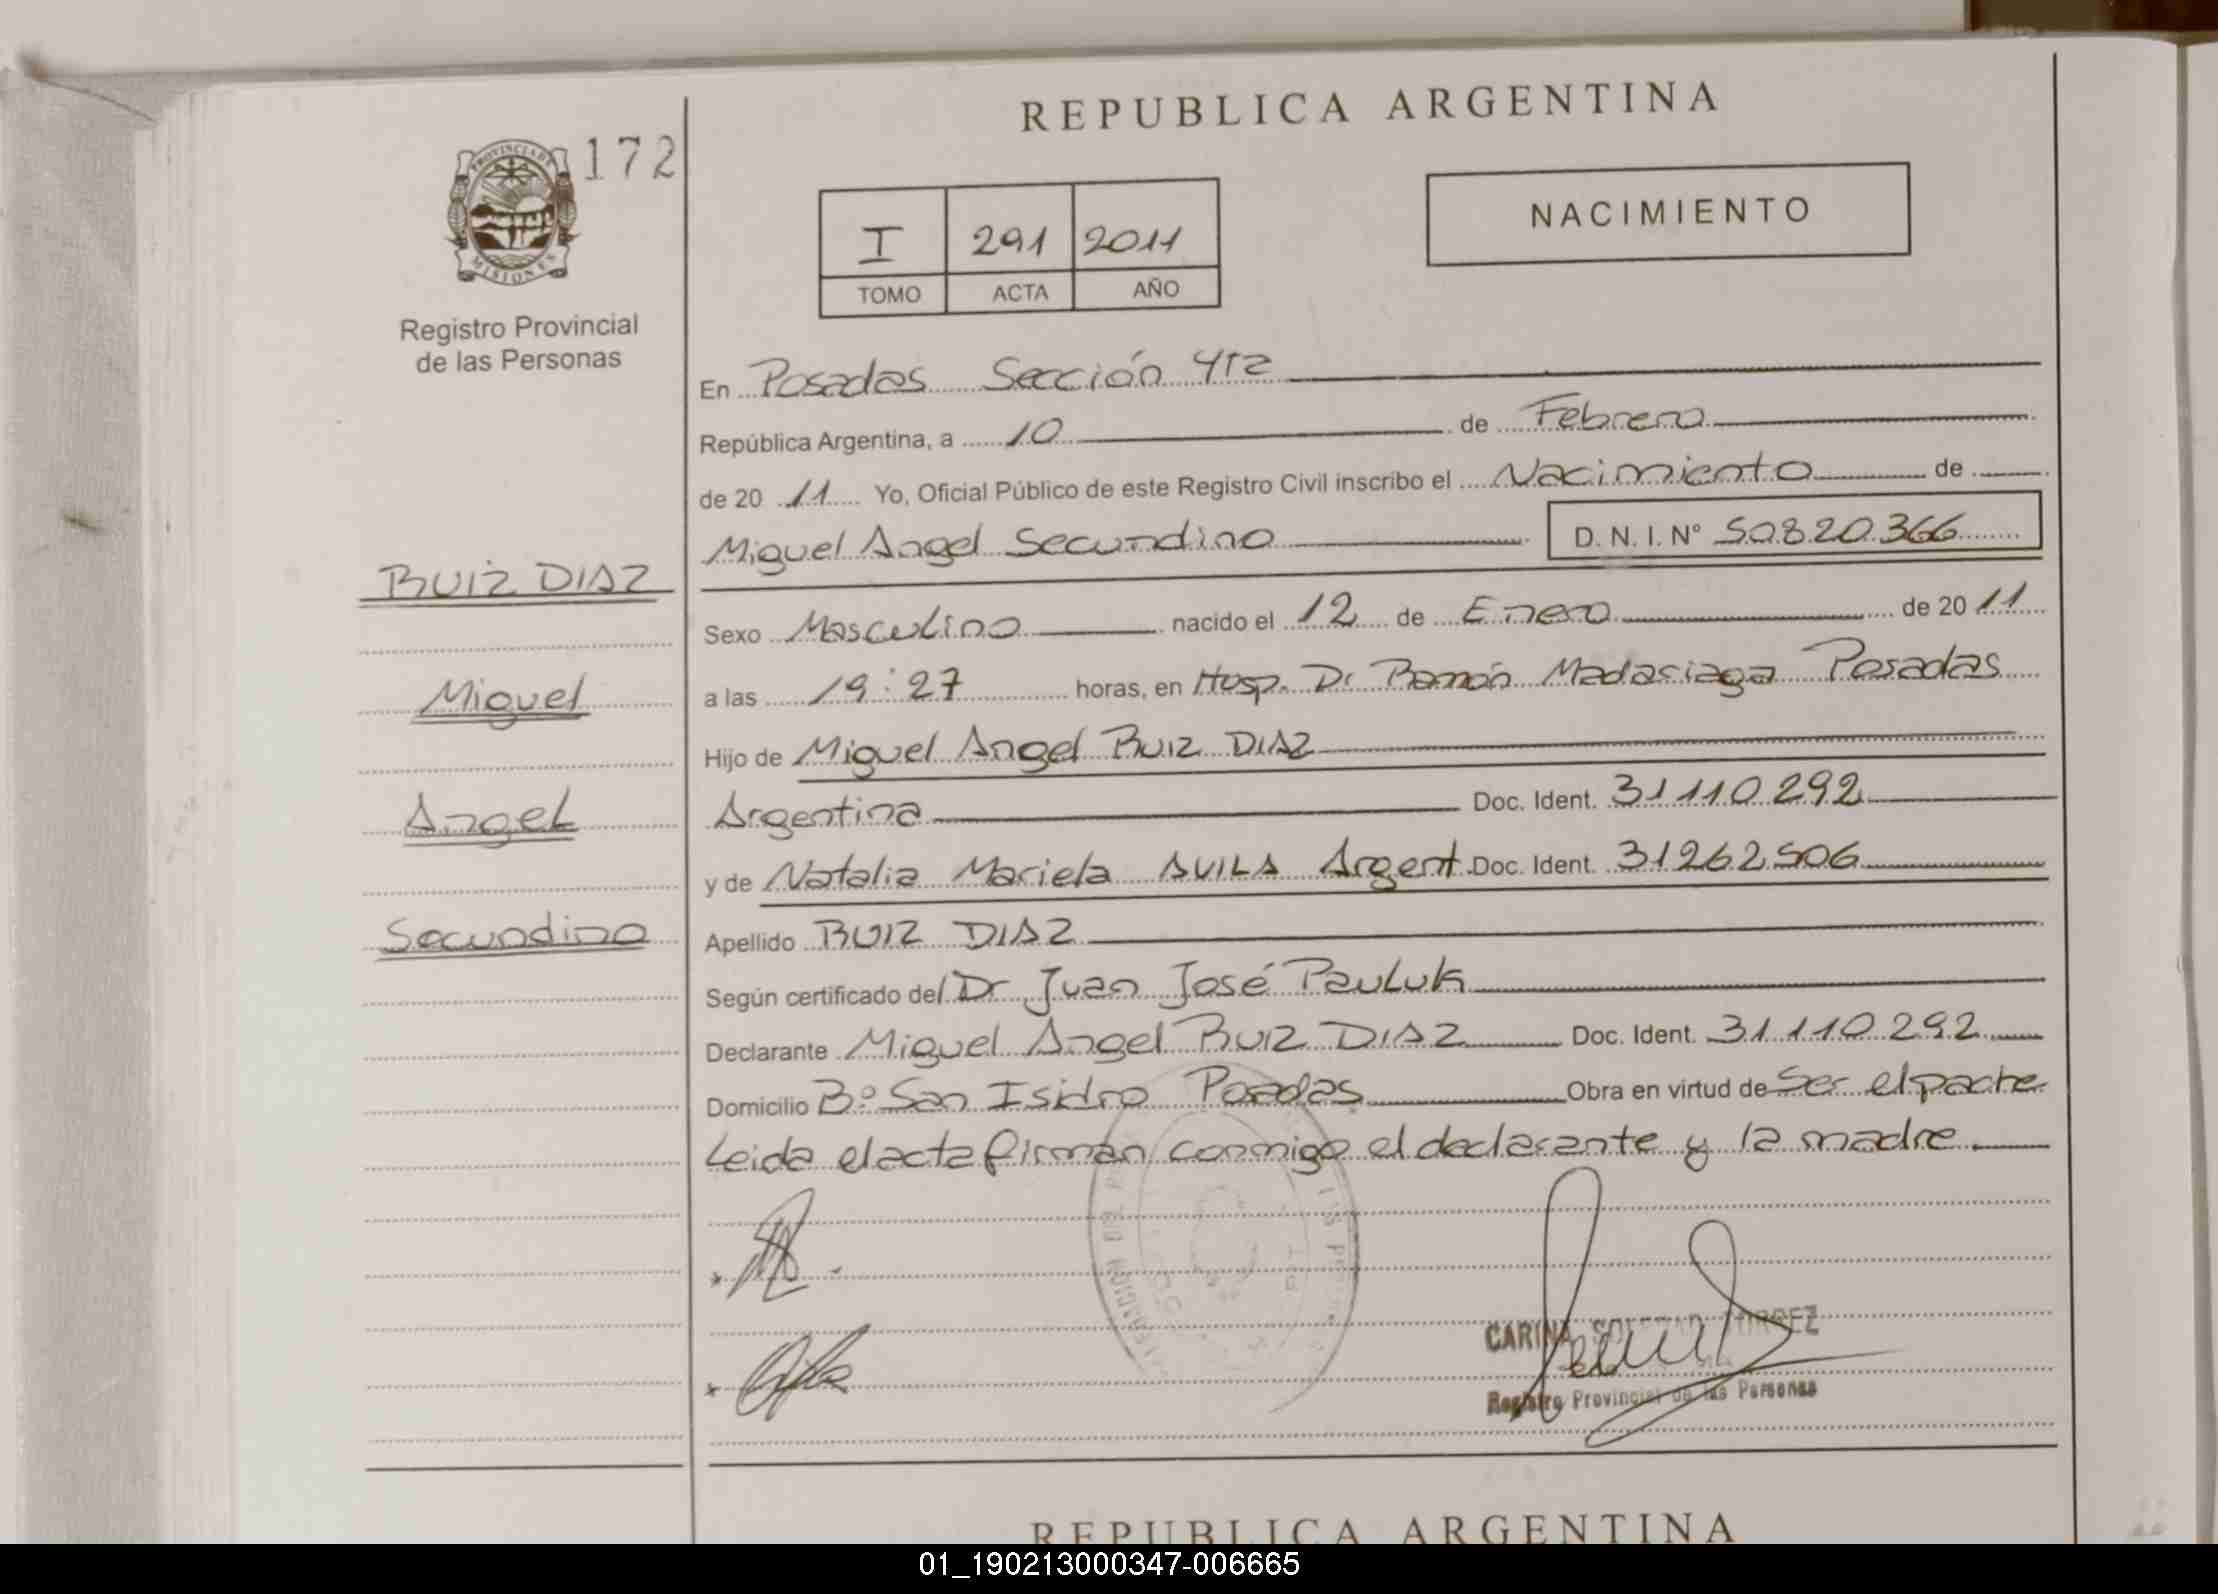 REPUBLICA ARGENTINA
PROVINCIA DE
MISIONES
172
Registro Provincial
de las Personas
I 291 2011
TOMO ACTA AÑO
NACIMIENTO
En Posadas Sección 4ta
República Argentina, a 10 de Febrero
de 20 11 Yo, Oficial Público de este Registro Civil inscribo el Nacimiento de
Miguel Angel Secundino D. N. I. N° 50.820.366
RUIZ DIAZ
Miguel
Angel
Secundino
Sexo Masculino nacido el 12 de Enero de 20 11
a las 19:27 horas, en Hosp. Dr Ramón Madariaga Posadas
Hijo de Miguel Angel RUIZ DIAZ
Argentina Doc. Ident. 31.110.292
y de Natalia Mariela AVILA Argent. Doc. Ident. 31262.506
Apellido RUIZ DIAZ
Según certificado del Dr Juan José Pauluk
Declarante Miguel Angel RUIZ DIAZ Doc. Ident. 31.110.292
Domicilio B° San Isidro Posadas Obra en virtud de Ser el padre
Leida el acta firman conmigo el declarante y la madre.
CARINA SOLEDAD
Registro Provincial de las Personas
REPUBLICA ARGENTINA
01_190213000347-006665